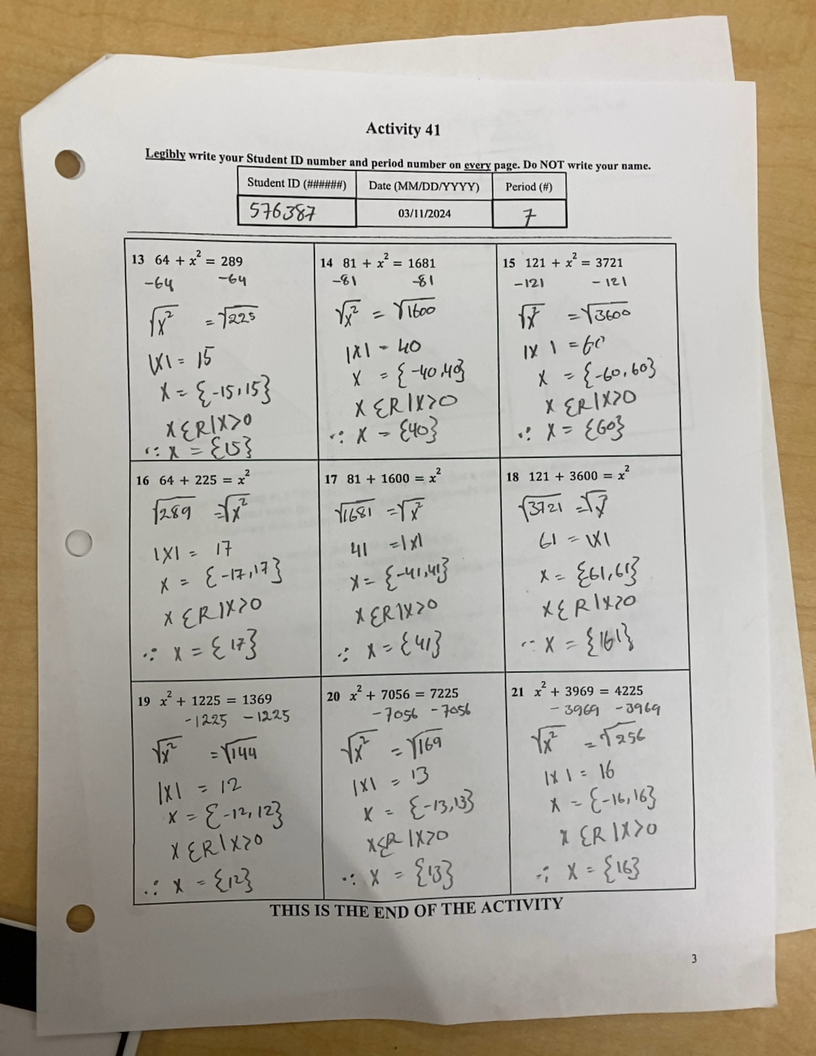 Activity 41
Legibly write your Student ID number and period number on every page. Do NOT write your name.
Student ID (######) Date (MM/DD/YYYY) Period (#)
576387 03/11/2024 7
13 64 + x² = 289
-64 -64
√x² = √225
|x| = 15
x = {-15,15}
x ER|x>0
∴ x = {15}
14 81 + x² = 1681
-81 -81
√x² = √1600
|x| = 40
x = {-40,40}
x ER|x>0
∴ x = {40}
15 121 + x² = 3721
-121 -121
√x² = √3600
|x| = 60
x = {-60,60}
x ER|x>0
∴ x = {60}
16 64 + 225 = x²
√289 = √x²
|x| = 17
x = {-17,17}
x ER|x>0
∴ x = {17}
17 81 + 1600 = x²
√1681 = √x²
41 = |x|
x = {-41,41}
x ER|x>0
∴ x = {41}
18 121 + 3600 = x²
√3721 = √x²
61 = |x|
x = {61,61}
x ER|x>0
∴ x = {161}
19 x² + 1225 = 1369
-1225 -1225
√x² = √144
|x| = 12
x = {-12,12}
x ER|x>0
∴ x = {12}
20 x² + 7056 = 7225
-7056 -7056
√x² = √169
|x| = 13
x = {-13,13}
x ER|x>0
∴ x = {13}
21 x² + 3969 = 4225
-3969 -3969
√x² = √256
|x| = 16
x = {-16,16}
x ER|x>0
∴ x = {16}
THIS IS THE END OF THE ACTIVITY
3